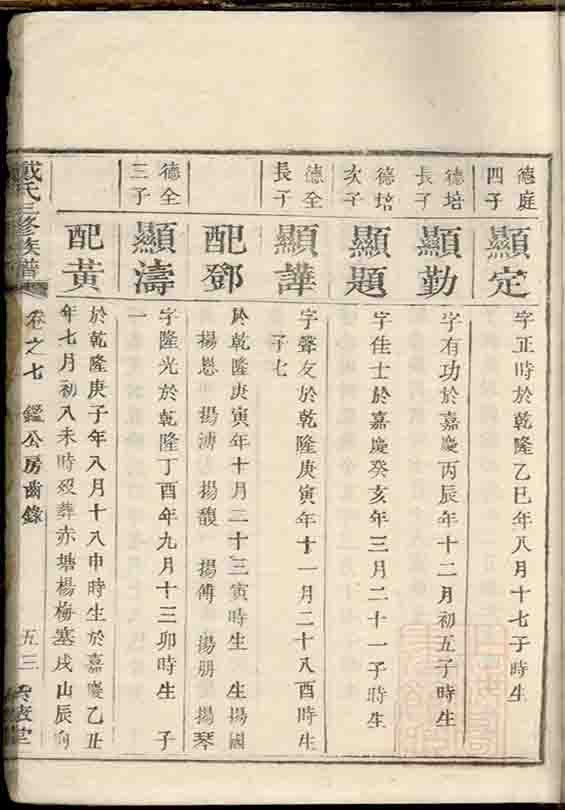 德庭
四子
顯定
字正時於乾隆乙巳年八月十七子時生
德培
長子
顯勤
字有功於嘉慶丙辰年十二月初五子時生
德培
次子
顯題
字佳士於嘉慶癸亥年三月二十一子時生
德全
長子
顯譁
字聲友於乾隆庚寅年十一月二十八酉時生
子七
配鄧
於乾隆庚寅年十月二十三寅時生 生揚國
揚恩 揚溥 揚馥 揚傅 揚朋 揚琴
德全
三子
顯濤
字隆光於乾隆丁酉年九月十三卯時生 子
一
配黃
於乾隆庚子年八月十八申時生於嘉慶乙丑
年七月初八未時歿葬赤塘楊梅塞戌山辰向
戴氏三修族譜
卷之七 鑑公房齒錄
五三